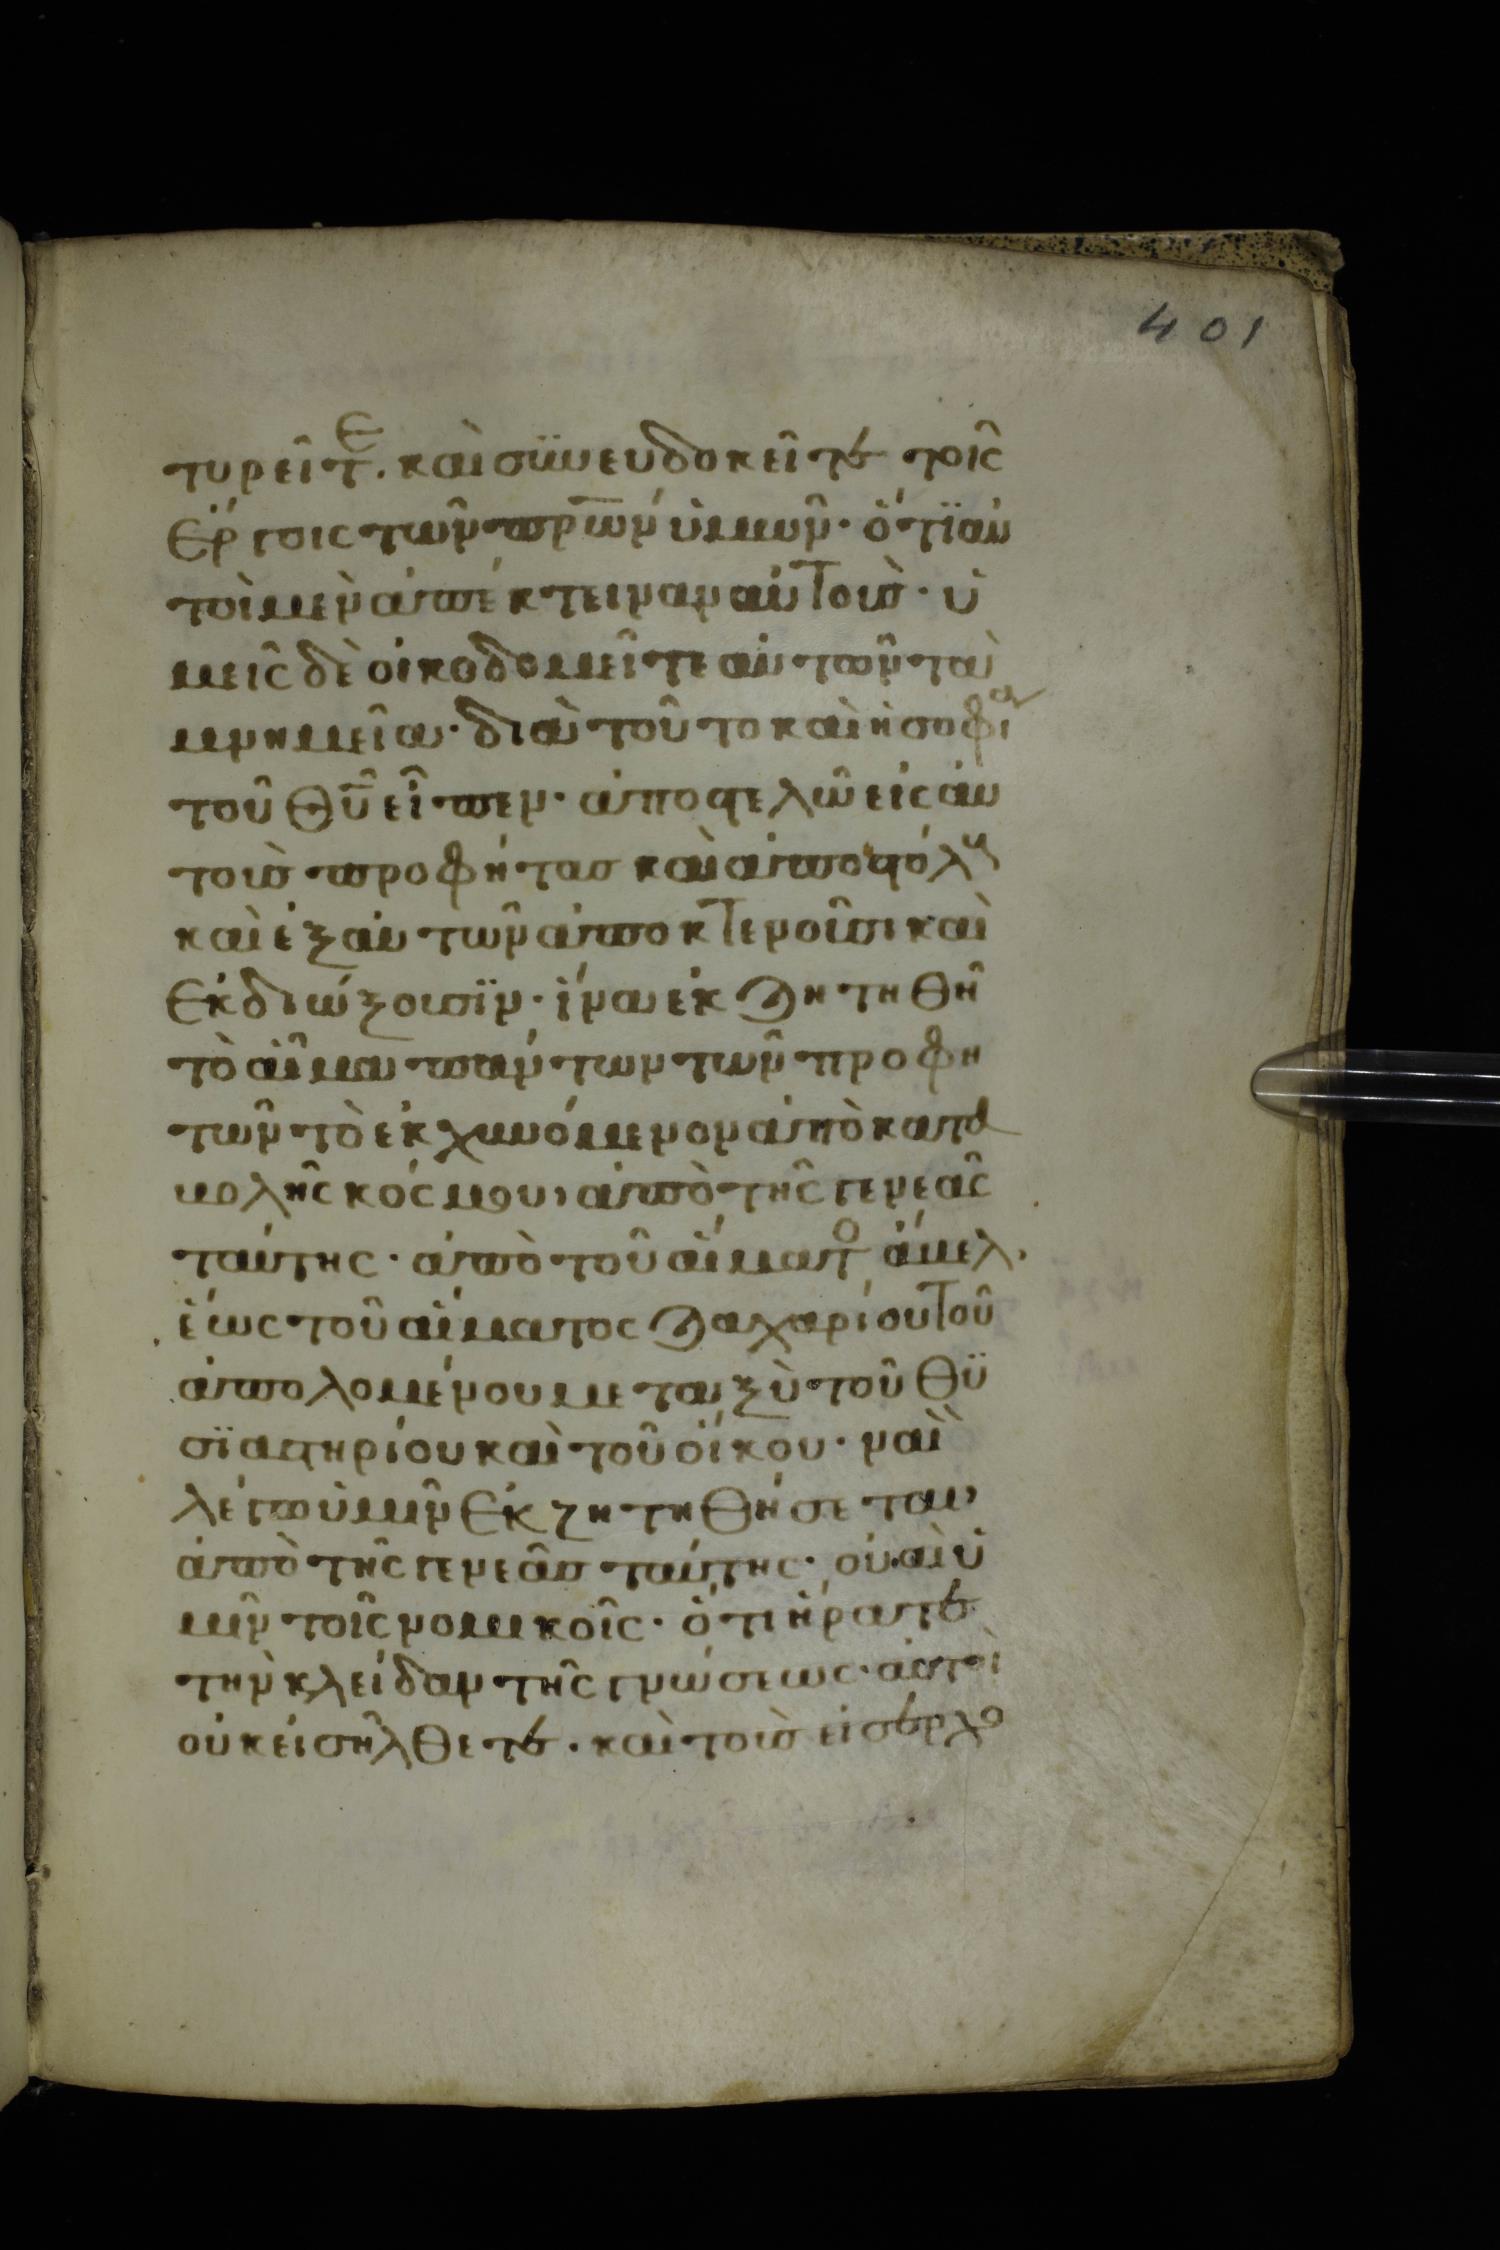 401
τυρεῖτε. καὶ σϋνευδοκεῖτε τοῖς
ἔργοις τῶν πρ̅ων ὑμων̑· ὅτϊ αυ
τοὶ μὲν ἀπέκτειναν αὐτοὺς· ὑ
μεῖς δὲ οἰκοδομεῖτε αὐτῶν τὰ
μνημεῖα· διὰ τοῦτο καὶ ἡ σοφία
τοῦ θ̅υ̅ εἶπεν· ἀποστελῶ εἰς αὐ
τοὺς προφήτας καὶ ἀποστόλους
καὶ ἐξ αὐτῶν ἀποκτενοῦσι καὶ
ἐκδιώξουσϊν· ἵνα ἐκζητηθῆ
τὸ αἷμα πάντων τῶν προφη
τῶν τὸ ἐκχυνόμενον ἀπὸ κατα
βολῆς κόσμου, ἀπὸ τῆς γενεᾶς
ταύτης· ἀπὸ τοῦ αἵματο ἄβελ.
ἕως τοῦ αἵματος ζαχαρίου τοῦ
ἀπολομένου μεταξὺ τοῦ θϋ
σϊαστηρίου καὶ τοῦ οἴκου· ναὶ
λέγω ὑμῖν ἐκζητηθήσεται
ἀπὸ τῆς γενεᾶς ταύτης· οὐαὶ ὑ
μῖν τοῖς νομικοῖς· ὅτι ἤρατε
τὴν κλείδαν τῆς γνώσεως· αὐτοὶ
οὐκ εἰσήλθετε. καὶ τοὺς εἰσερχο